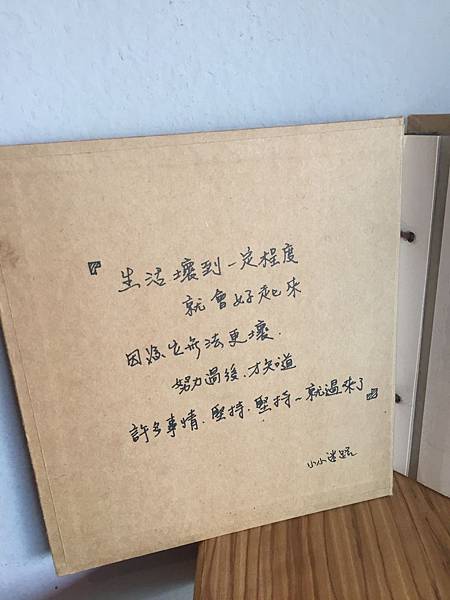 『生活壞到一定程度
就會好起來
因為它無法更壞.
努力過後,才知道
許多事情.堅持.堅持一就過來了』
小小迷路